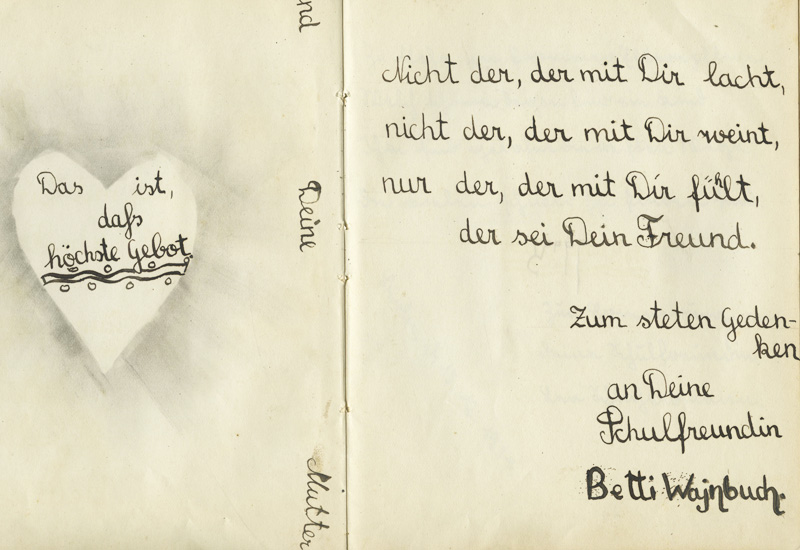 Das ist,
daß
höchste Gebot.
nd
Deine
Mutter
Nicht der, der mit Dir lacht,
nicht der, der mit Dir weint,
nur der, der mit Dir fühlt,
der sei Dein Freund.
Zum steten Geden-
ken
an Deine
Schulfreundin
Betti Wajnbuch.